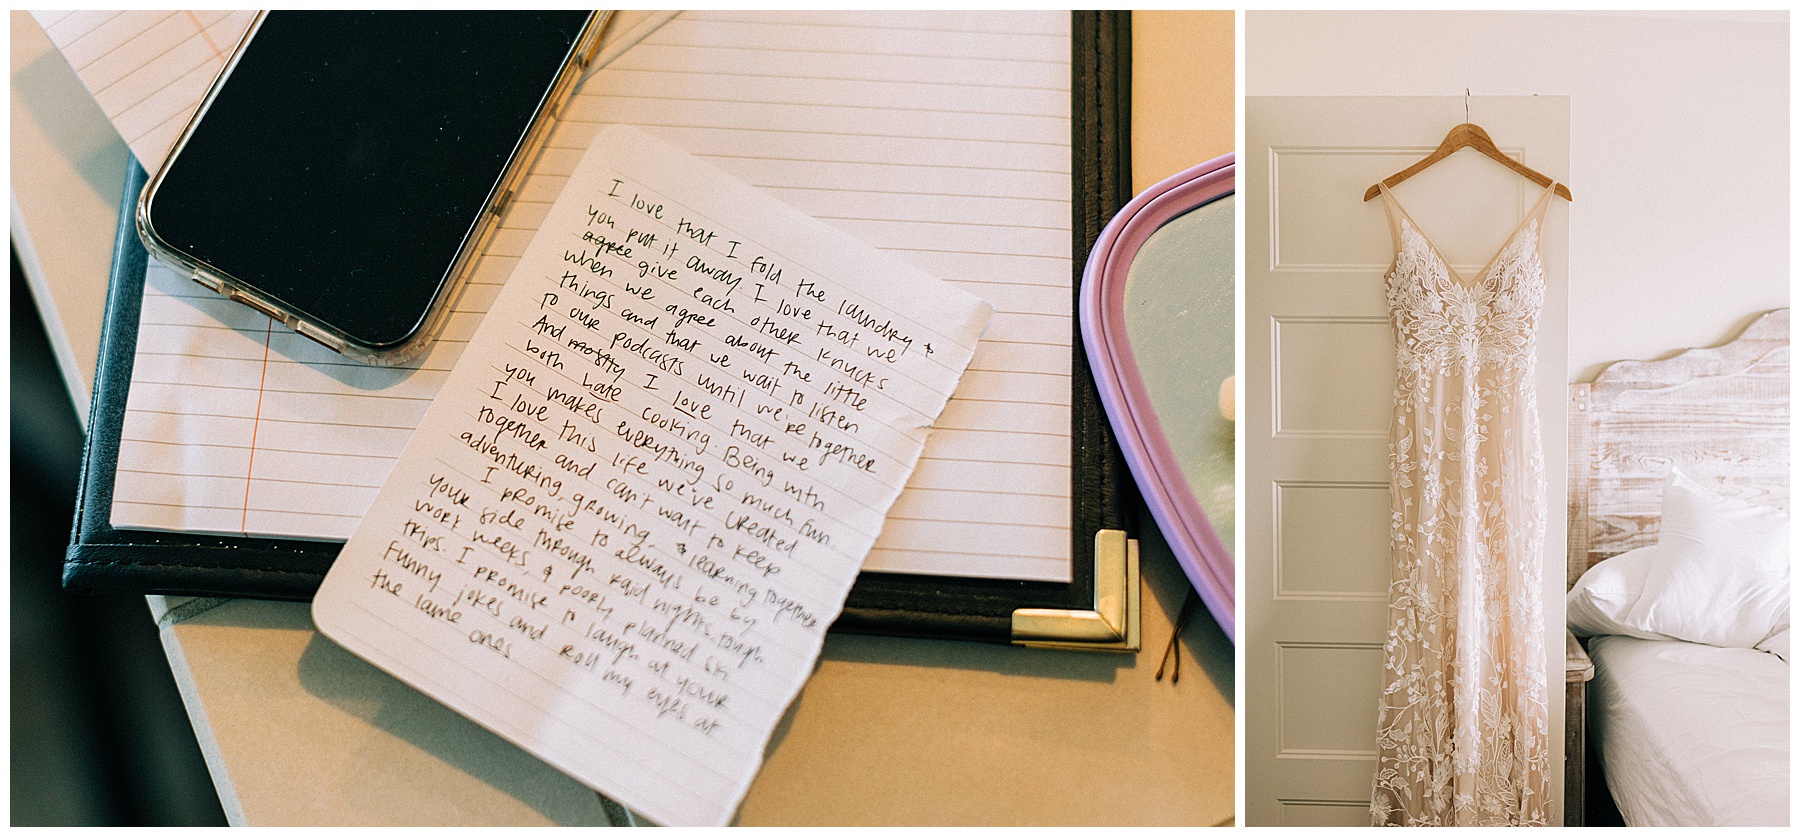 I love that I fold the laundry &
you put it away. I love that we
agree give each other knucks
when we agree about the little
things and that we wait to listen
to our podcasts until we're together
And mostly I love that we
both hate cooking. Being with
you makes everything so much fun.
I love this life we've created
together and can't wait to keep
adventuring, growing, & learning together
I promise to always be by
your side through raid nights, tough
work weeks, & poorly planned ski
trips. I promise to laugh at your
funny jokes and roll my eyes at
the lame ones